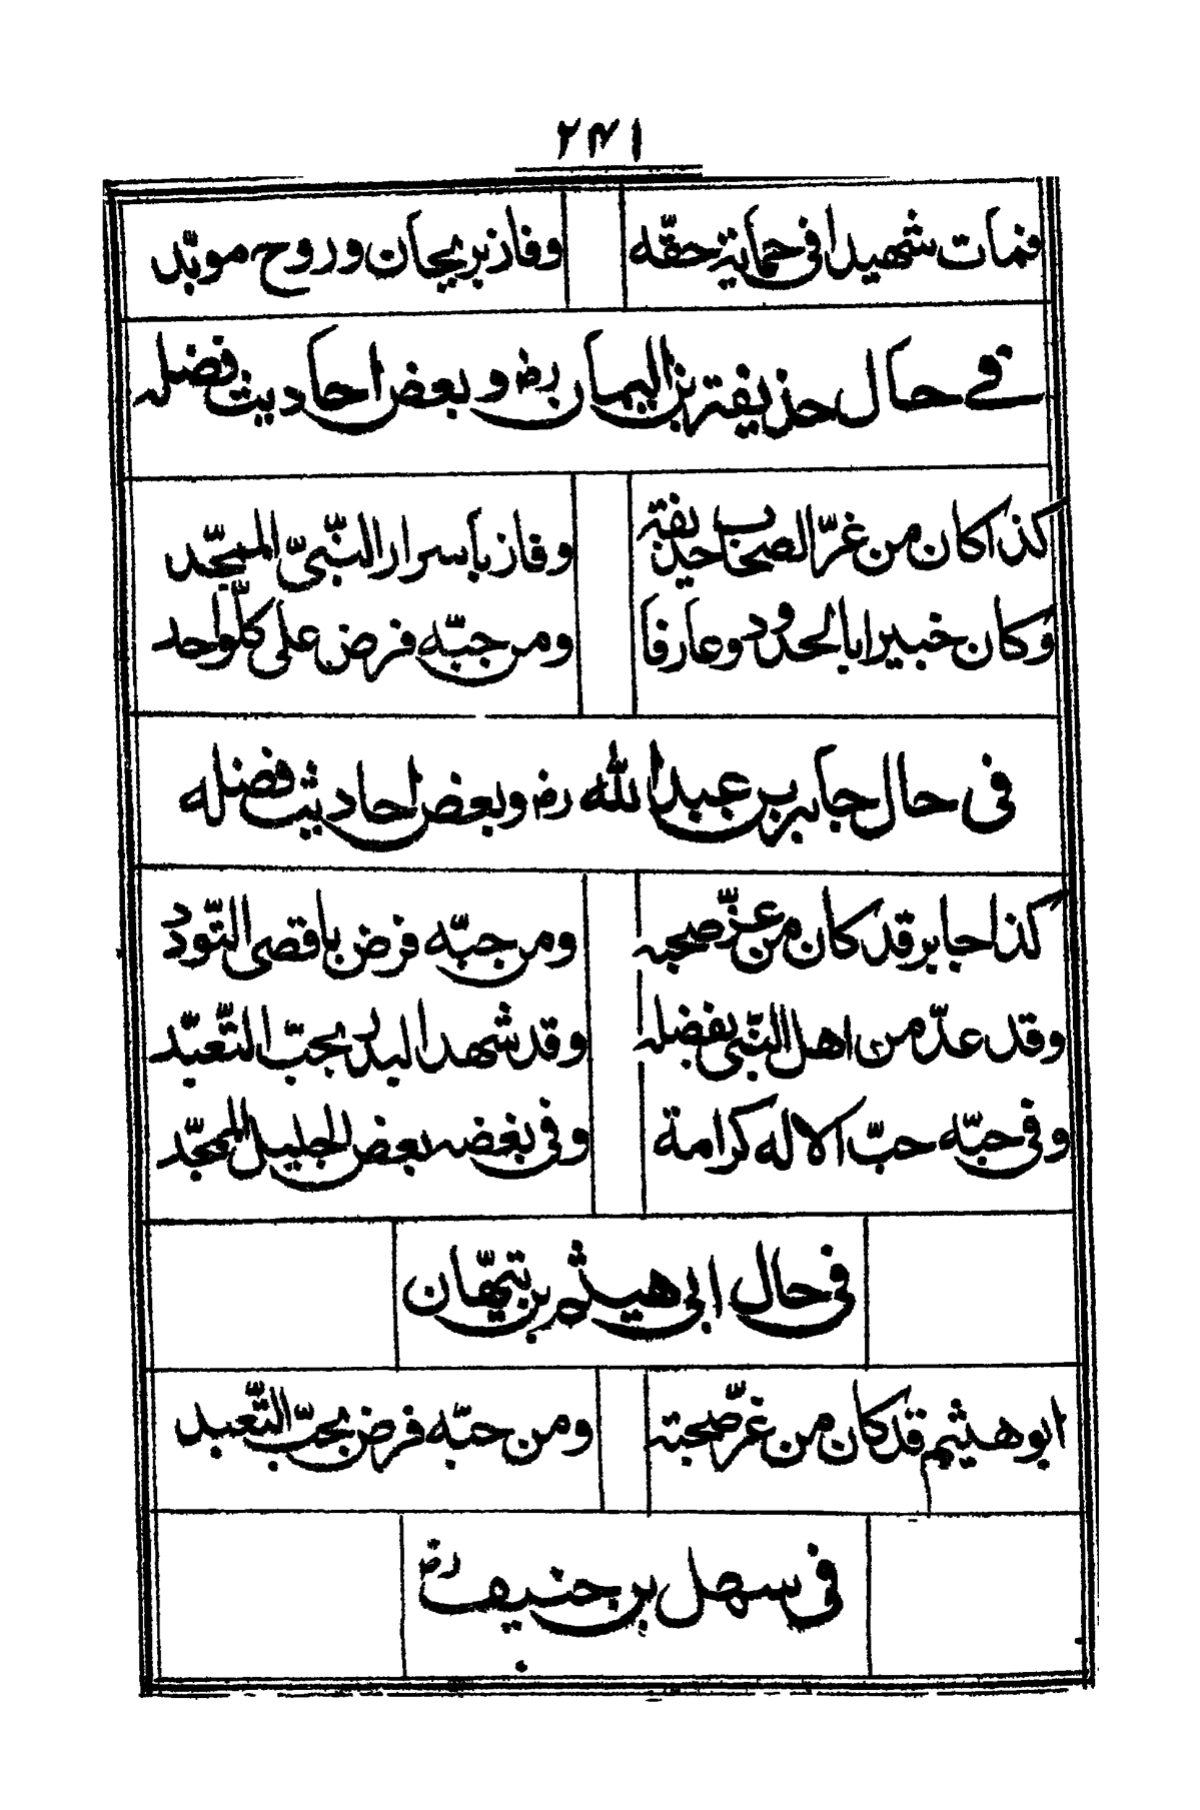 ٢٤١
فمات شهيدا فى حماية حقّه وفاز بريحان وروح موبّد
فے حال حذيفة بن اليمان رض و بعض احاديث فضله
كذا كان من غرّ الصحاب حذيفة وفاز باسرار النّبىّ الممجّد
وكان خبيرا بالحدود وعارفا ومن حبّه فرض على كلّ واحد
فى حال جابر بن عبد الله رض وبعض احاديث فضله
كذا جابر قد كان من غرّ صحبه ومن حبّه فرض باقصى التّودّد
وقد عدّ من اهل النّبى بفضله وقد شهد البدر بحبّ التّعبّد
وفى حبّه حبّ الاله كرامة وفى بغضه بعض الجليل الممجّد
فى حال ابى هيثم بن تيّهان
ابو هيثم قد كان من غرّ صحبته ومن حبّه فرض بحبّ التّعبد
فى سهل بن حنيف رض